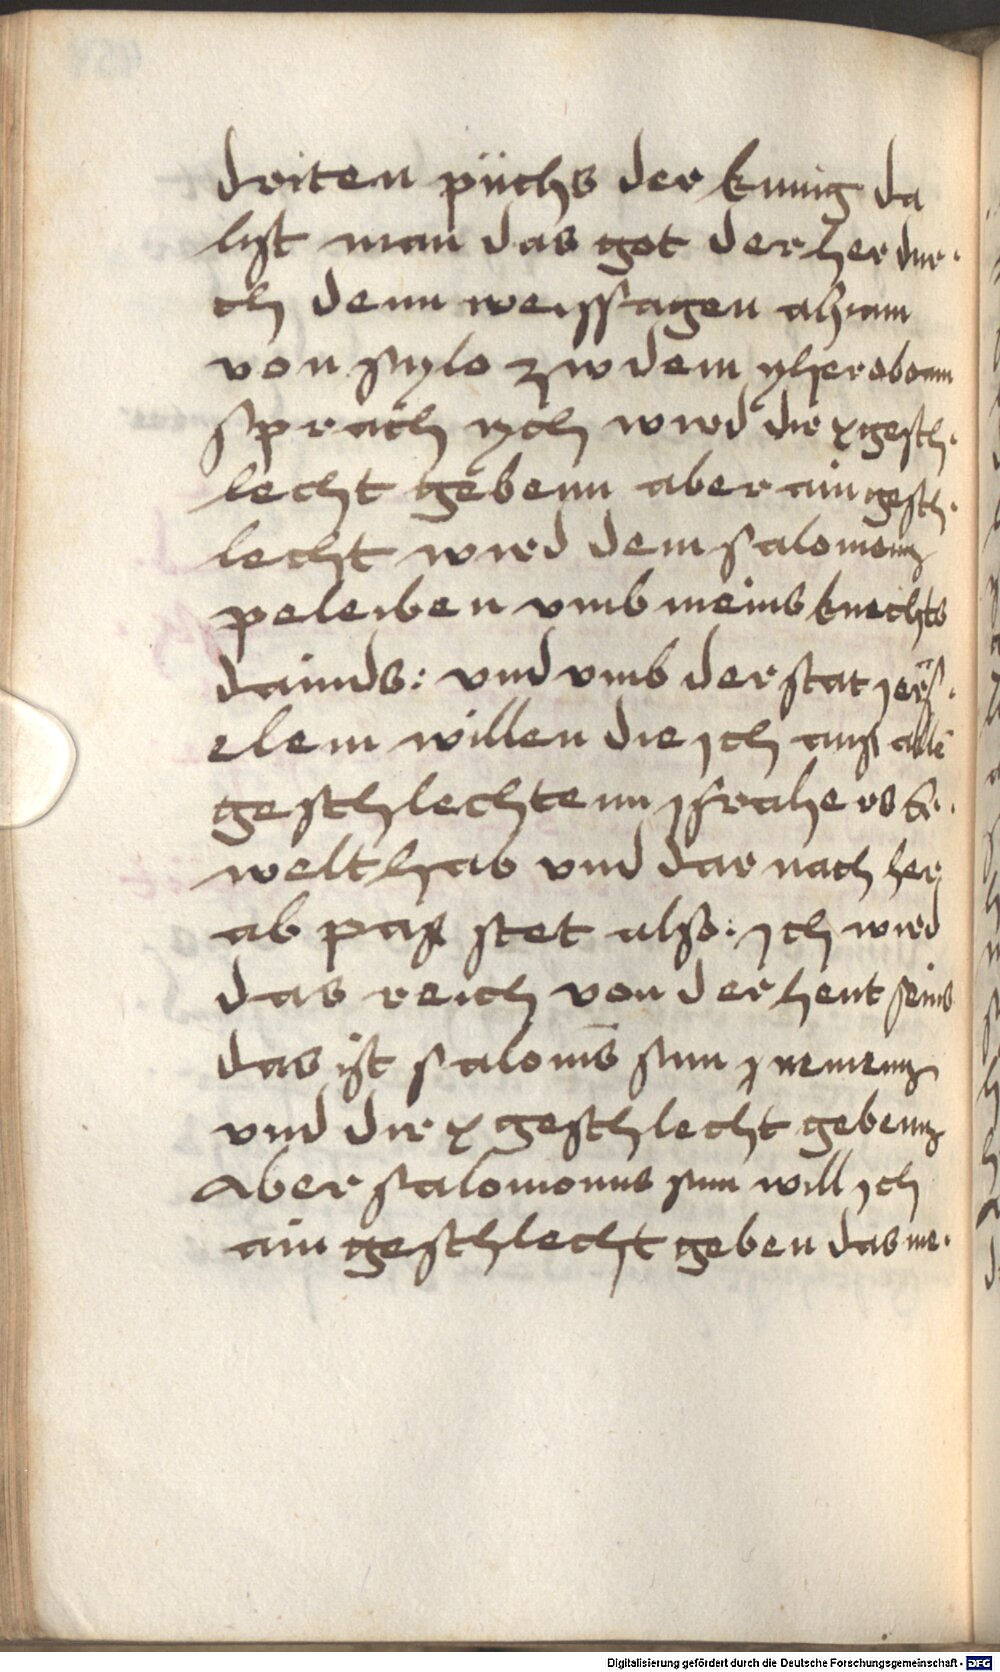 driten püchs der kunig da
list man das got der her dur·
ch denn weissagen ahiam
von sylo zw dem yheroboam
sprach ych wird dir x gesch·
lecht gebenn aber ain gesch·
lecht wird dem salomonn
peleiben vmb meins knechts
dauids: vnd vmb der stat Jerus·
elem willen die Jch auß allē
geschlechtenn Jsrahels er·
welt hab vnd dar nach her
ab paß stet also: Jch wird
das reich von der hent seins
das ist salomōs sun nemenn
vnd dir x geschlecht gebenn
Aber salomonus sun will Jch
ain geschlecht geben das me·
Digitalisierung gefördert durch die Deutsche Forschungsgemeinschaft - DFG